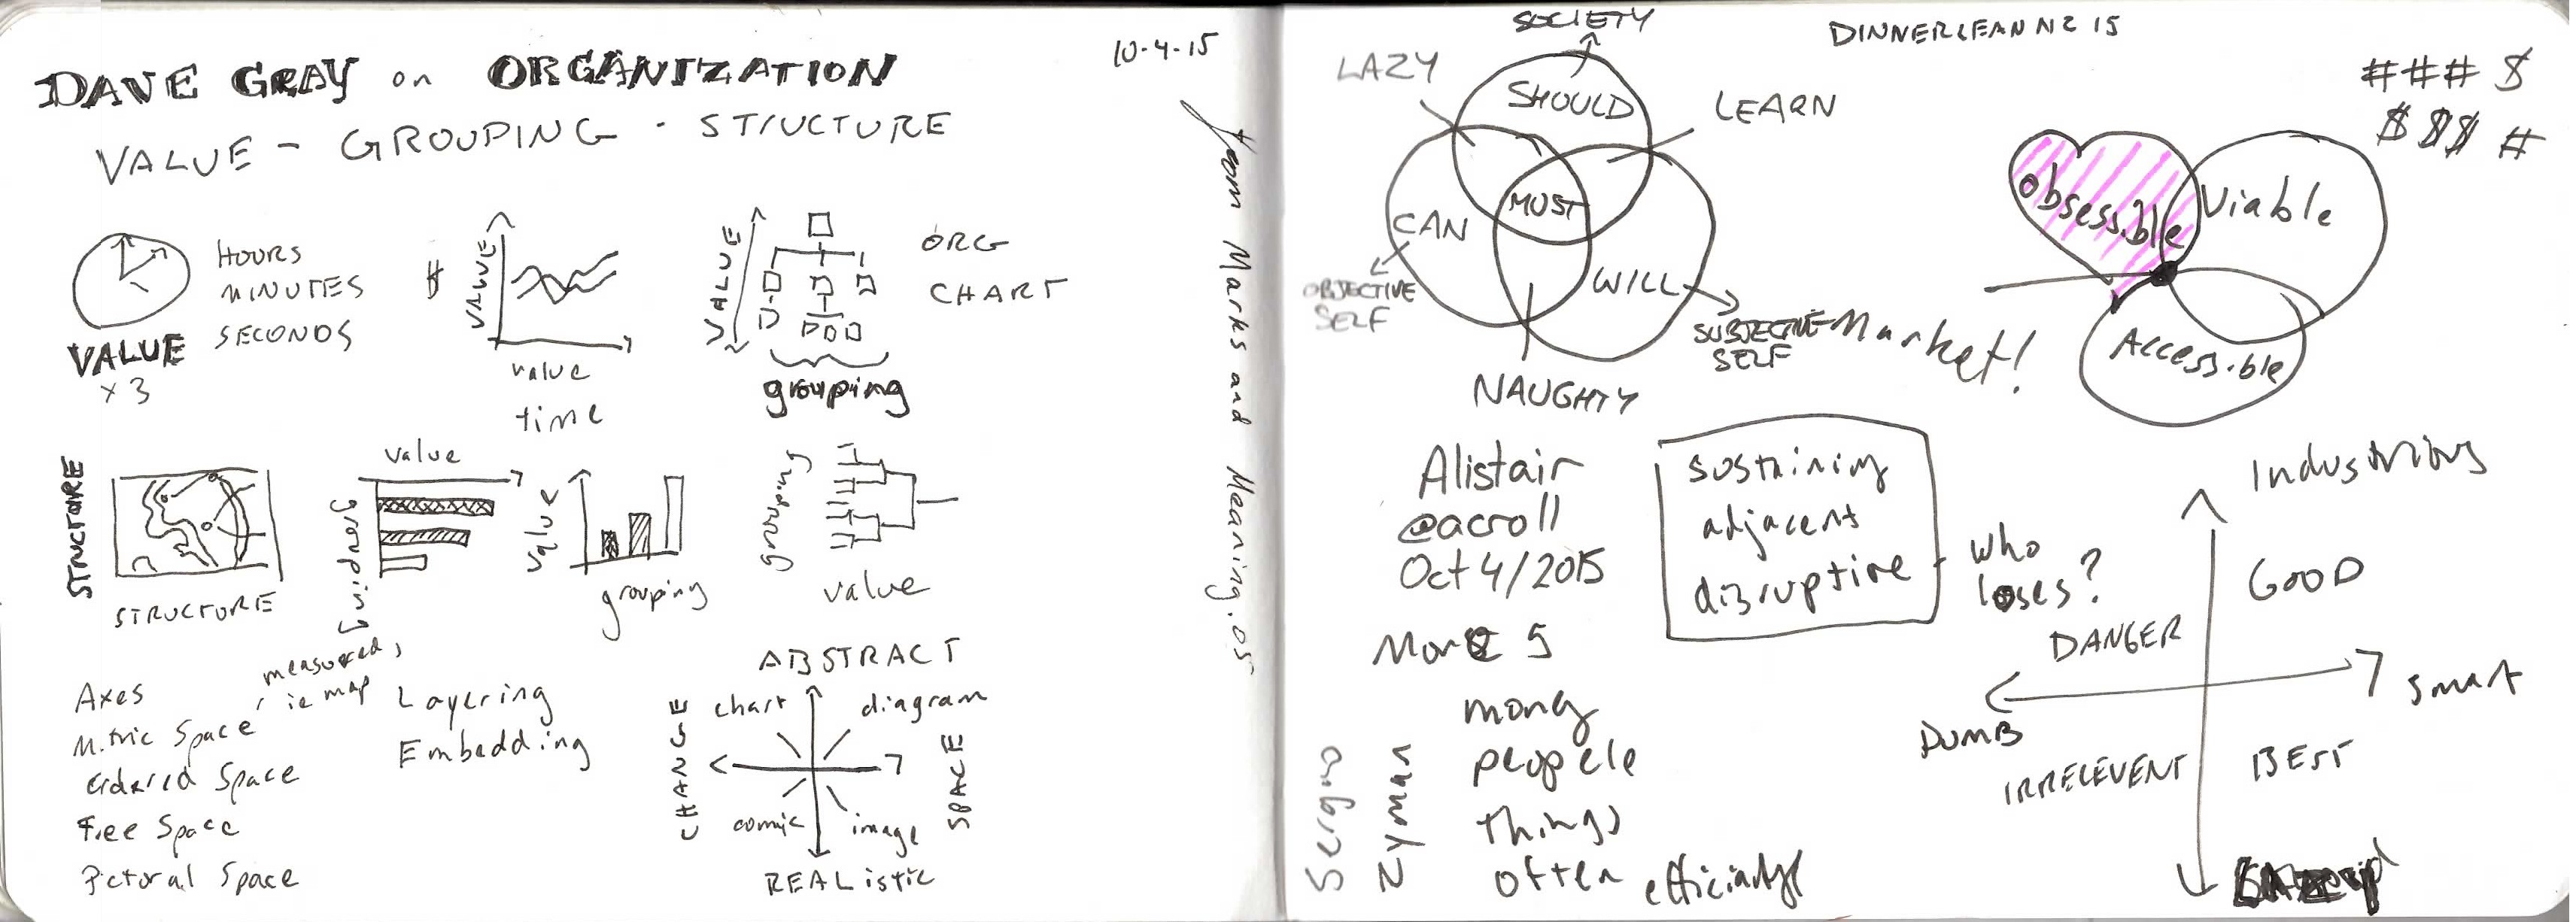 10-4-15
DAVE GRAY on ORGANIZATION
VALUE - GROUPING - STRUCTURE
from Marks and Meaning, 05
HOURS
MINUTES
SECONDS
VALUE
x 3
#
VALUE
value
time
VALUE
grouping
ORG
CHART
STRUCTURE
STRUCTURE
value
grouping
value
grouping
grouping
value
measured,
ie map
Axes
Metric Space
Ordered Space
Free Space
Pictoral Space
Layering
Embedding
ABSTRACT
chart
diagram
CHANGE
SPACE
comic
image
REALISTIC
SOCIETY
LAZY
SHOULD
LEARN
CAN
MUST
WILL
OBJECTIVE
SELF
SUBJECTIVE
SELF
NAUGHTY
DINNERLEANNZ 15
# # # $
$ $ $ #
obsessible
Viable
Accessible
Market!
Alistair
@acroll
Oct 4/2015
sustaining
adjacent
disruptive
who
loses?
More 5
money
peopele
things
often
Sergio
Zyman
Industrious
GOOD
DANGER
Smart
DUMB
IRRELEVENT
BEST